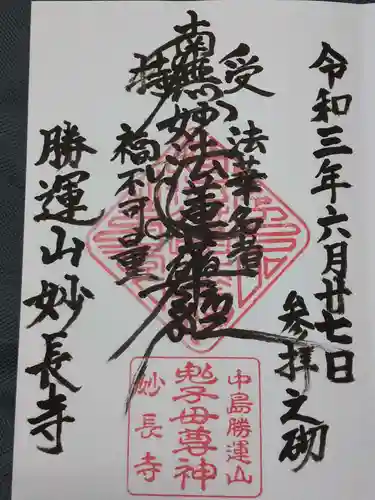 令和三年六月廿七日
参拝之砌
受持
法華名者
南無妙法蓮華経
福不可量
勝運山妙長寺
中島勝運山
鬼子母尊神
妙長寺